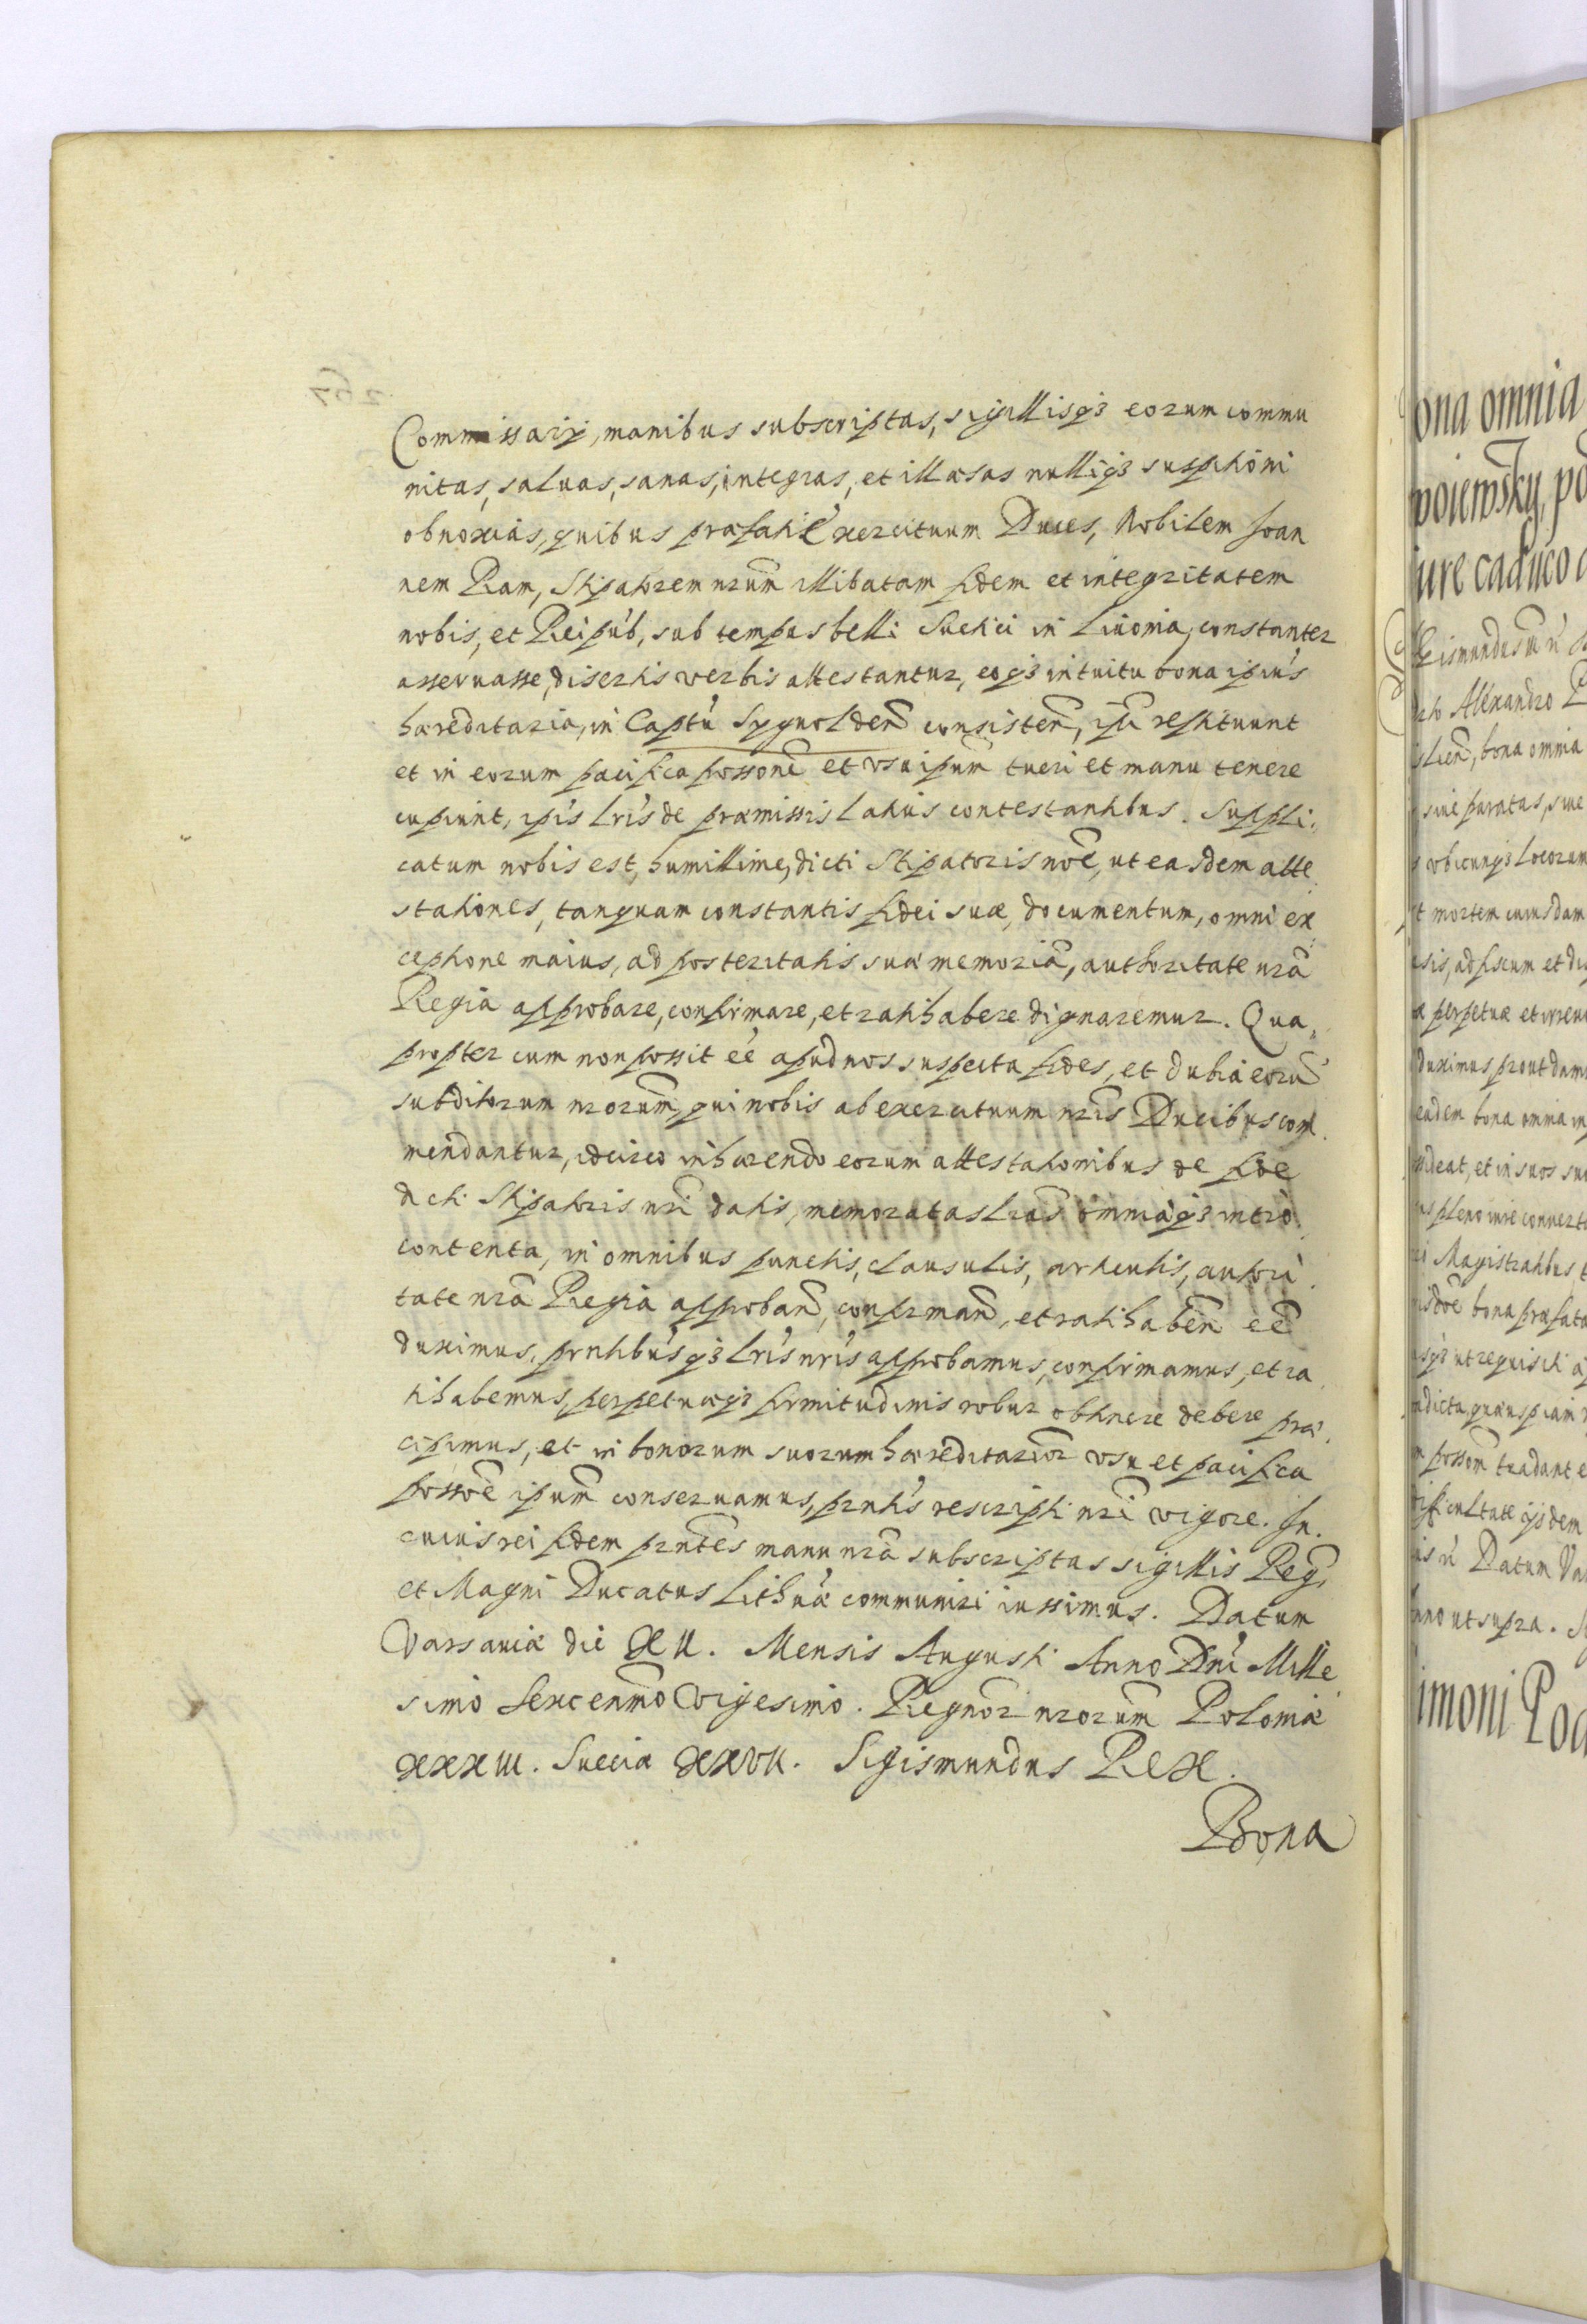 Commissarij, manibus subscriptas, sigillisqз eorum commu
nitas, saluas, sanas, integras, et illæsas nulliqз suspitioni
obnoxias, quibus præfati Exercituum Duces, Nobilem Joan
nem Ram, Stipatorem nrũm illibatam fidem et integritatem
nobis, et Reipub, sub tempus belli Suetici in Liuonia, constanter
asseruasse, disertis verbis attestantur, eoqз intuitu bona ipius
hæreditaria, in Captu Sygnolden̄ consisten̄, ipi restituunt
et in eorum pacifica possone et vsu ipum tueri et manu tenere
cupiunt, ipis Lris de præmissis latius contestantibus. Suppli,
catum nobis est, humillime, dicti Stipatoris noe, ut easdem atte
stationes, tanquam constantis fidei suæ, documentum, omni ex
ceptione maius, ad posteritatis suæ memoriã, authoritate nrã
Regia approbare, confirmare, et ratihabere dignaremur. Qua,
propter cum non possit eé apud nos suspecta fides, et dubia eorũ
subditorum nrorum, qui nobis ab exercituum nris Ducibus com
mendantur, idcirco inhærendo eorum attestationibus de fide
dicti Stipatoris nri datis, memoratas Lras omniaqз intro
contenta, in omnibus punctis, clausulis, articulis, autori
tate nrã Regia approban̄, confirman̄, et ratihaben̄ eé
duximus, prntibusqз Lris nris approbamus, confirmamus, et ra
tihabemus, perpetuæqз firmitudinis robur obtinere debere præ
cipimus, et in bonorum suorum hæreditarior vsu et pacifica
possoe ipum conseruamus, prntis rescripti nri vigore. In.
cuius rei fidem prntes manu nrã subscriptas sigillis Regi
et Magni Ducatus Lithuæ communiri iussimus. Datum
Varsauiæ die XII. Mensis Augusti Anno Dni Mille
simo Sexcenmo Vigesimo. Regnor nrorum Poloniæ
XXXIII. Sueciæ XXVII. Sigismundus Rex.
Bona
ona omnia
woiewsky, po
iure caduco
Alexandro
bona omnia
siue paratas, siue
vbicunqз locorum
mortem cuiusdam
perpetuæ et irreu
duximus prout dam
eadem bona omnia
ideat, et in suos
pleno iure conuert
Magistratibus
bona præfata
ut requisiti
tradant
ficultate ijsdem
Datum Va
nno ut supra.
imoni Pod